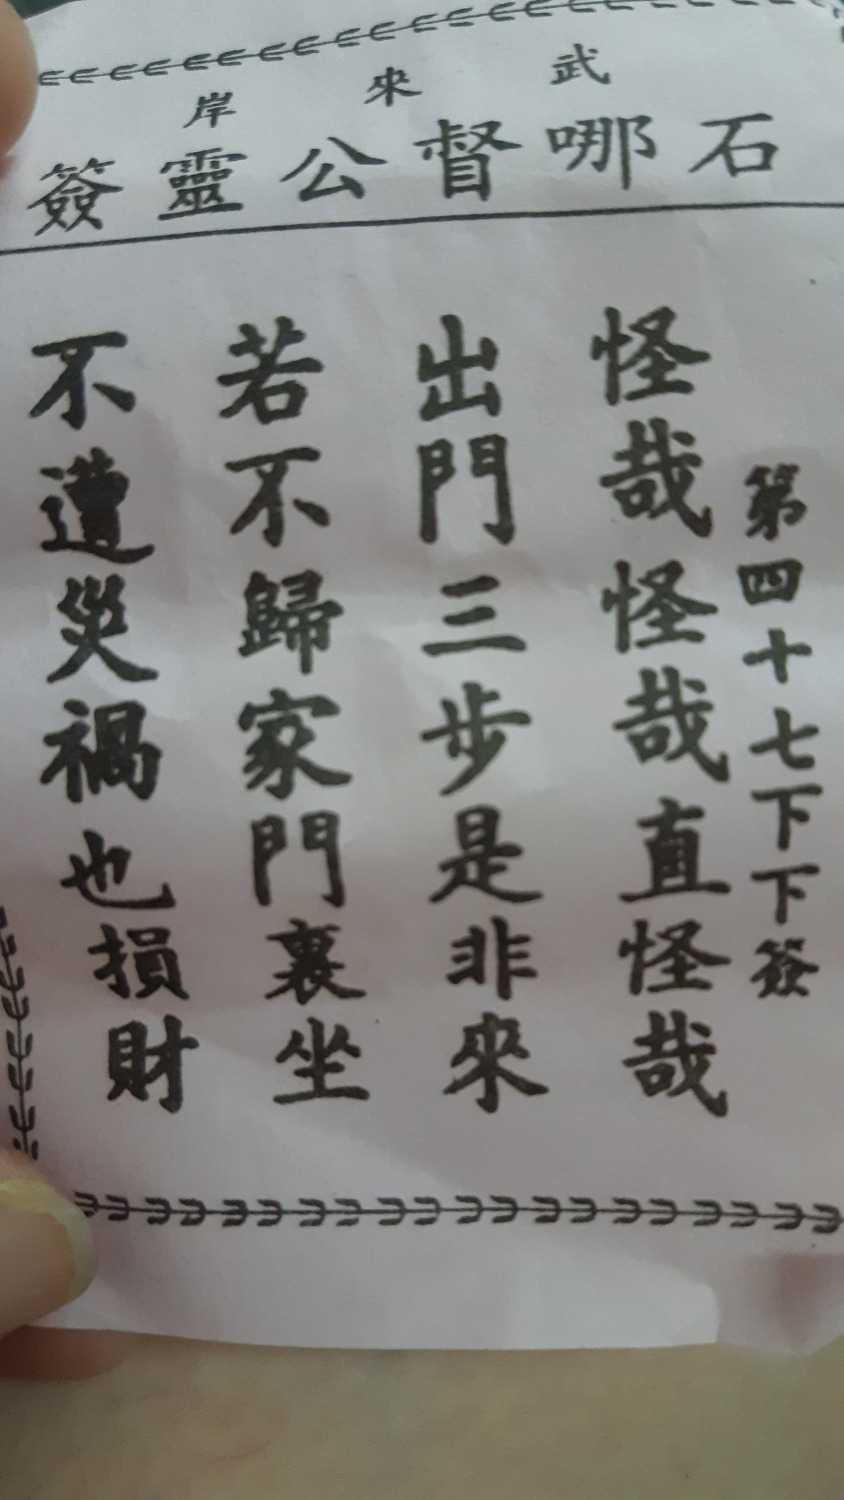 武來岸
石哪督公靈簽
第四十七下下簽
怪哉怪哉直怪哉
出門三步是非來
若不歸家門裏坐
不遭災禍也損財